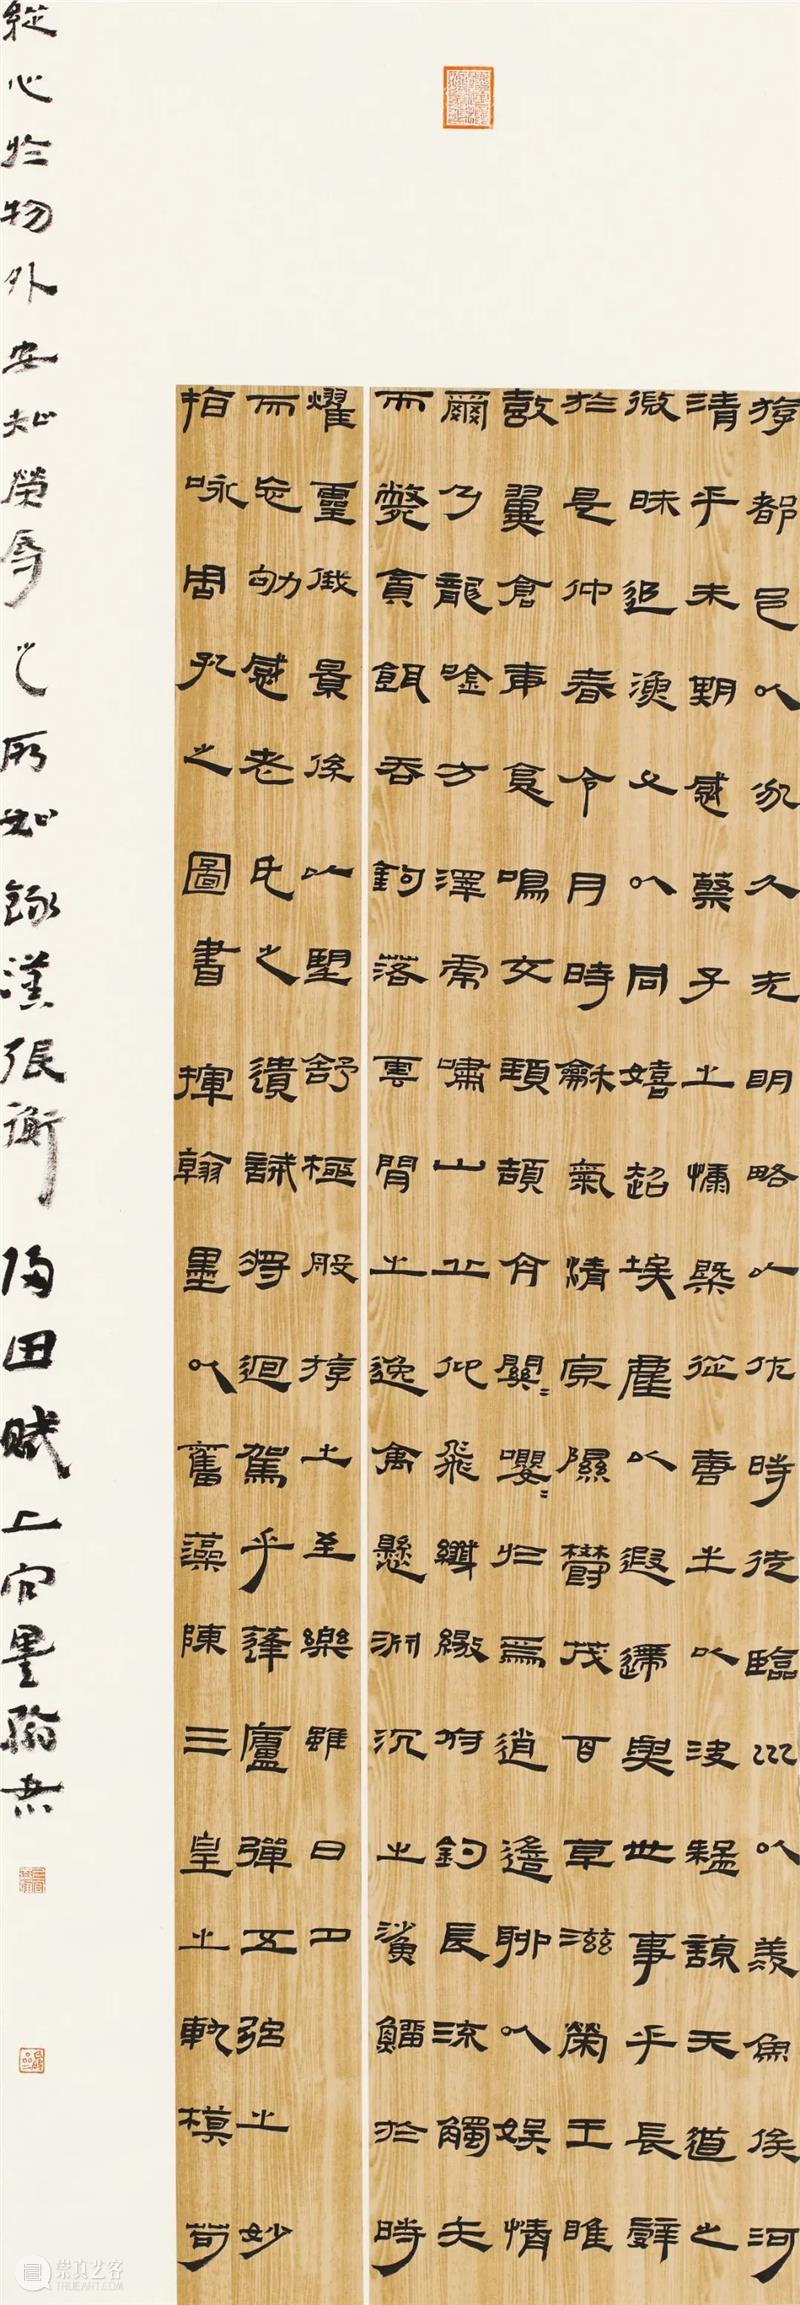 游都邑以永久无明略以作時徒臨川以羨魚俟河
清乎未期感蔡子之慷慨從唐生以決疑諒天道之
微昧追漁父以同嬉超埃塵以遐逝與世事乎長辭
於是仲春令月時龢氣清原隰鬱茂百草滋榮王雎
鼓翼倉庚哀鳴交頸頡頏關〻嚶〻於焉逍遙聊以娛情
爾乃龍吟方澤虎嘯山丘仰飛纖繳俯釣長流觸矢
而斃貪餌吞鉤落雲間之逸禽懸淵沉之鯊鰡於時
耀靈俄景係以望舒極般游之至樂雖日夕
而忘劬感老氏之遺誡將迴駕乎蓬廬彈五弦之妙
指咏周孔之圖書揮翰墨以奮藻陳三皇之軌模苟
縱心於物外安知榮辱之所如錄漢張衡歸田賦上官墨翰
崇真艺客
TRUEART.COM